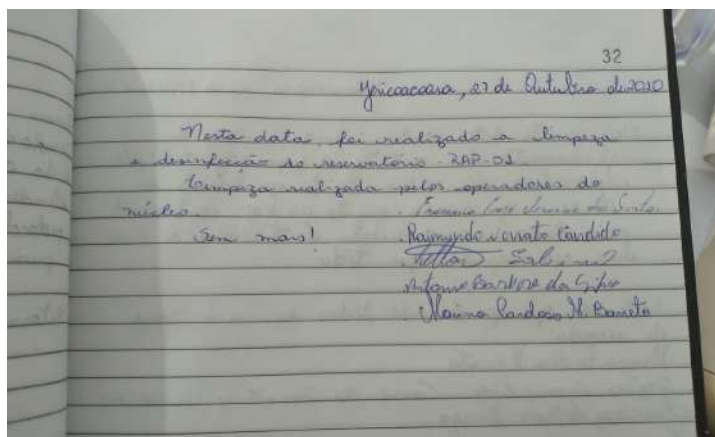 32
Jericoacoara, 27 de Outubro de 2020
Nesta data, foi realizado a limpeza
e desinfecção do reservatório - RAP-01.
Limpeza realizada pelos operadores do
núcleo.
Sem mais!
Raimundo Nonato Cândido
Antonio Barbosa da Silva
Cardoso M. Barreto